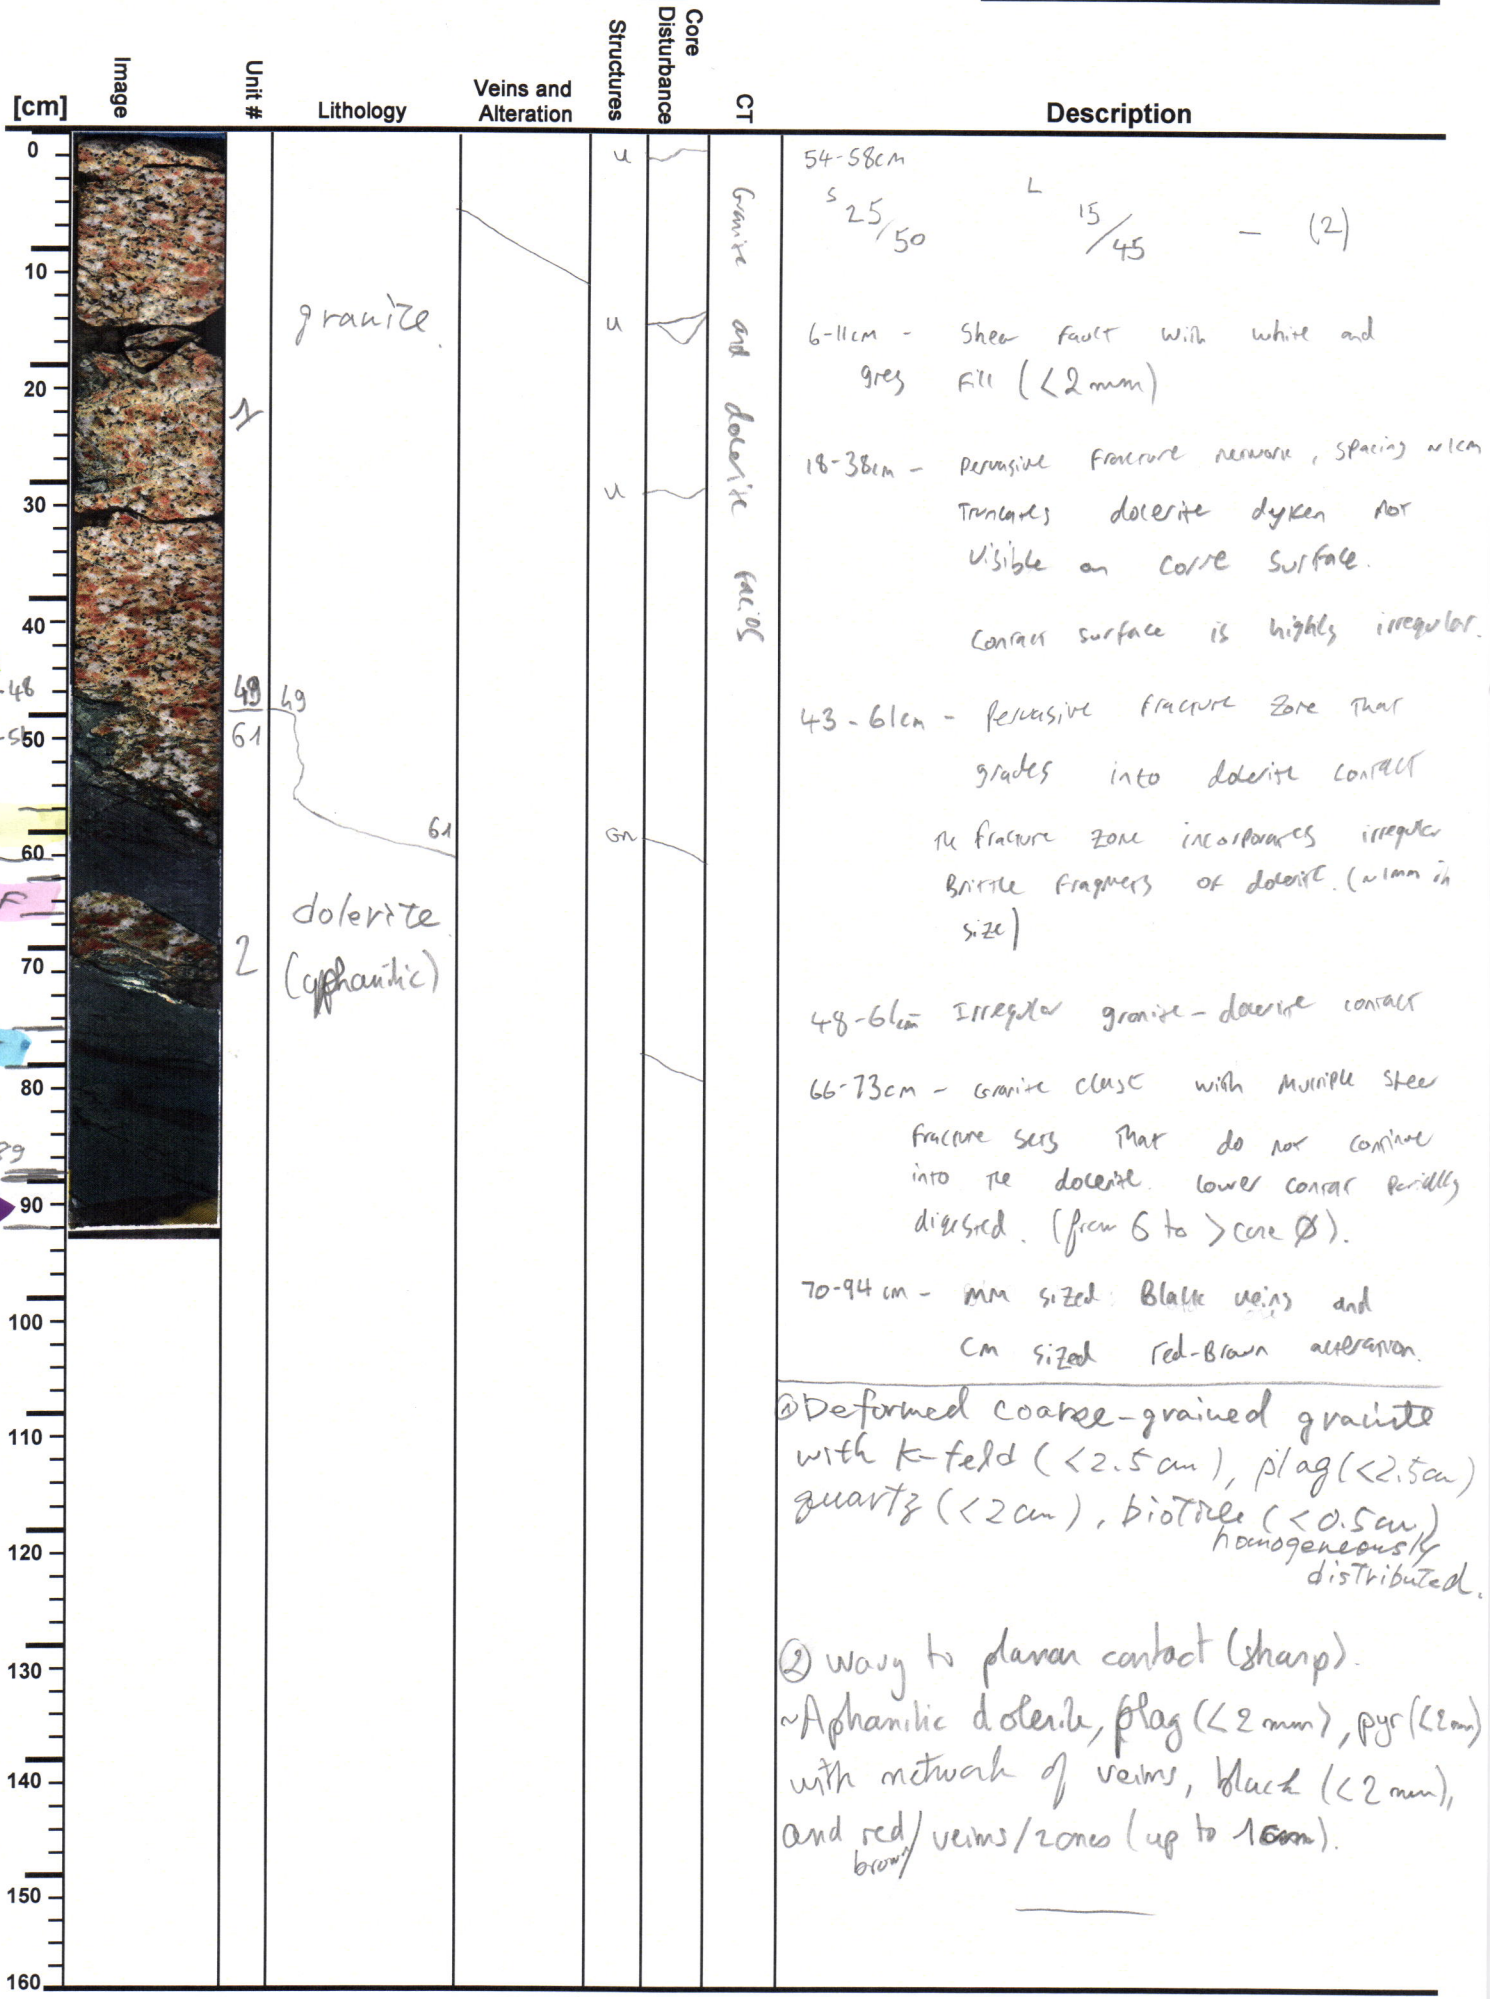 [cm]
Image
Unit #
Lithology
Veins and
Alteration
Structures
Core
Disturbance
CT
Description
0
10
20
30
40
50
60
70
80
90
100
110
120
130
140
150
160
-48
F
1
49
61
2
granite
49
61
dolerite
(aphanitic)
u
u
u
Gn
Granite and dolerite facies
54-58cm
S 25/50 L 15/45 - (2)
6-11cm - Shear fault with white and
grey Fill (<2mm)
18-38cm - Pervasive fracture network, spacing ~1cm
Truncates dolerite dyken not
visible on corre surface.
Contact surface is highly irregular.
43-61cm - Pervasive fracture zone that
grades into dolerite contact
The fracture zone incorporates irregular
Brittle fragments of dolerite. (~1mm in
size)
48-61cm Irregular granite-dolerite contact
66-73cm - Granite clast with Multiple steer
fracture sets that do not continue
into the dolerite. Lower contact partially
digested. (from 6 to > core Ø).
70-94cm - mm sized Black veins and
cm sized red-Brown alteration.
① Deformed coarse-grained granite
with K-feld (<2.5cm), plag (<2.5cm)
quartz (<2cm), biotite (<0.5cm)
homogeneously
distributed.
② wavy to planar contact (sharp).
~Aphanitic dolerite, plag (<2mm), pyr (<2mm)
with network of veins, black (<2mm),
and red/ veins/zones (up to
brown